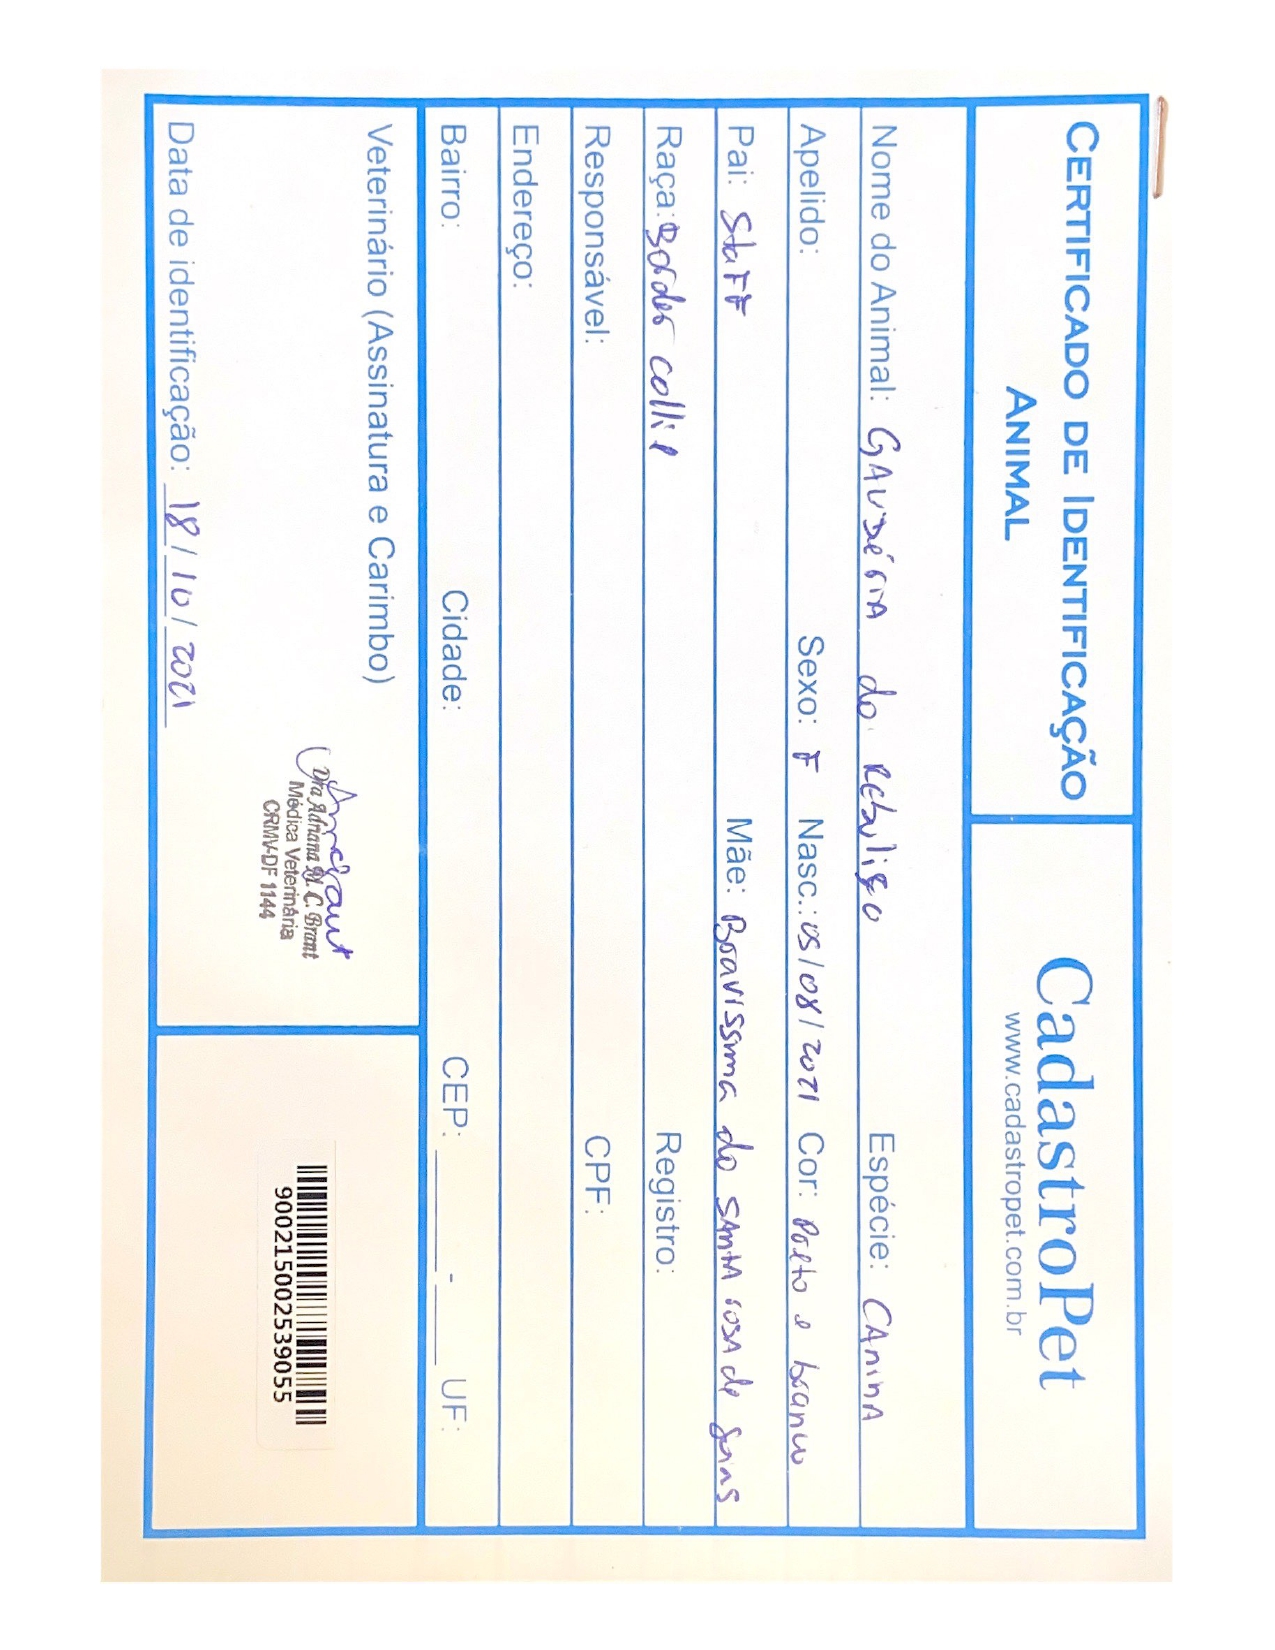 CERTIFICADO DE IDENTIFICAÇÃO
ANIMAL
CadastroPet
www.cadastropet.com.br
Nome do Animal: GAUDÉRIA do REbuliço Espécie: CAninA
Apelido: Sexo: F Nasc.: 05/08/2021 Cor: Preto e branco
Pai: StaFF Mãe: Bravissma do SAntA rosA de goias
Raça: Border collie Registro:
Responsável: CPF:
Endereço:
Bairro: Cidade: CEP: _____-____ UF:
Veterinário (Assinatura e Carimbo)
Dra Adriana M. C. Brant
Médica Veterinária
CRMV-DF 1144
Data de identificação: 18/10/2021
900215002539055